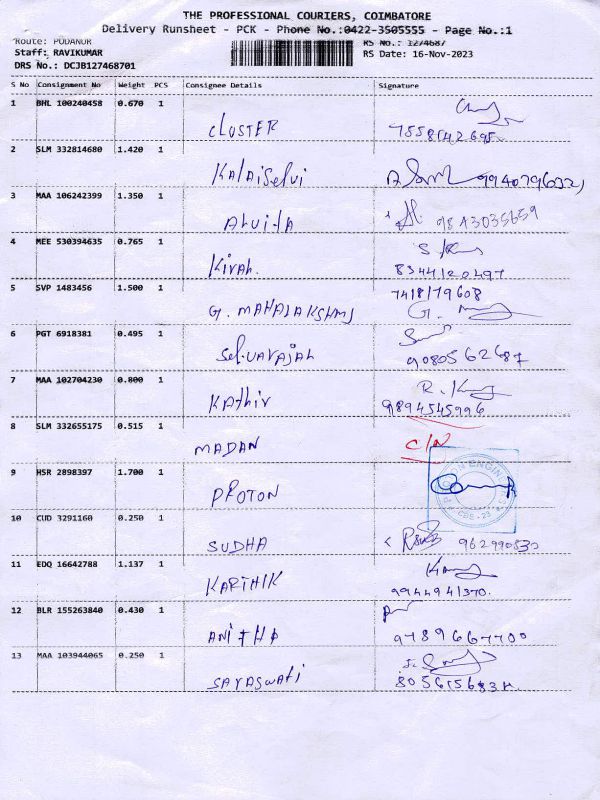 THE PROFESSIONAL COURIERS, COIMBATORE
Delivery Runsheet - PCK - Phone No.:0422-3505555 - Page No.:1
Route: PODANUR
RS No.: 1274687
Staff: RAVIKUMAR
RS Date: 16-Nov-2023
DRS No.: DCJB127468701
S No Consignment No Weight PCS Consignee Details Signature
1 BHL 100240458 0.670 1
CLUSTER
2 SLM 332814680 1.420 1
Kalaiselvi
3 MAA 106242399 1.350 1
9843035659
4 MEE 530394635 0.765 1
Kiran.
8344120497
5 SVP 1483456 1.500 1 7418179608
G. MAHALAKSHMI G.
6 PGT 6918381 0.495 1
Selvarajan 9080562687
7 MAA 102704230 0.800 1 R.
Kathir 9894545996
8 SLM 332655175 0.515 1
MADAN C/N
9 HSR 2898397 1.700 1
PROTON
10 CUD 3291160 0.250 1
SUDHA
11 EDQ 16642788 1.137 1
KARTHIK 9944941370.
12 BLR 155263840 0.430 1
ANITHA 9789667700
13 MAA 103944065 0.250 1
SARASWATI